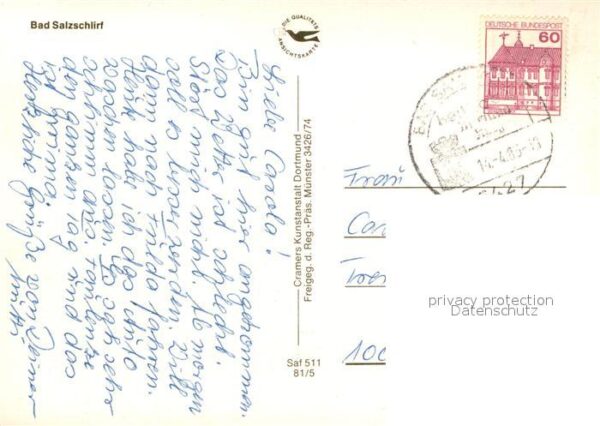 Bad Salzschlirf
DIE QUALITÄTS
ANSICHTSKARTE
DEUTSCHE BUNDESPOST
60
14.-4.85-15
6427
Liebe Carola!
Bin gut hier angekommen.
Das Wetter ist schlecht.
Stört mich nicht. Ab morgen
soll es besser werden. Will
dann nach Fulda fahren.
Heute habe ich das Auto
waschen lassen. Es sah sehr
schlimm aus.
den ganzen Tag und das
ist prima.
Herzliche Grüße von Deiner
Mutti
Cramers Kunstanstalt Dortmund
Freigeg. d. Reg.-Präs. Münster 3426/74
Saf 511
81/5
Frau
Car
100
privacy protection
Datenschutz